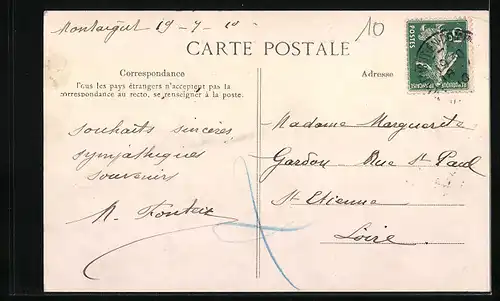 Montaigut 19-7-10
10
CARTE POSTALE
Correspondance
Tous les pays étrangers n'acceptent pas la
correspondance au recto, se renseigner à la poste.
Adresse
POSTES
souhaits sincères
sympathiques
souvenirs
Madame Marguerite
Gardon Rue St Paul
St-Etienne
Loire